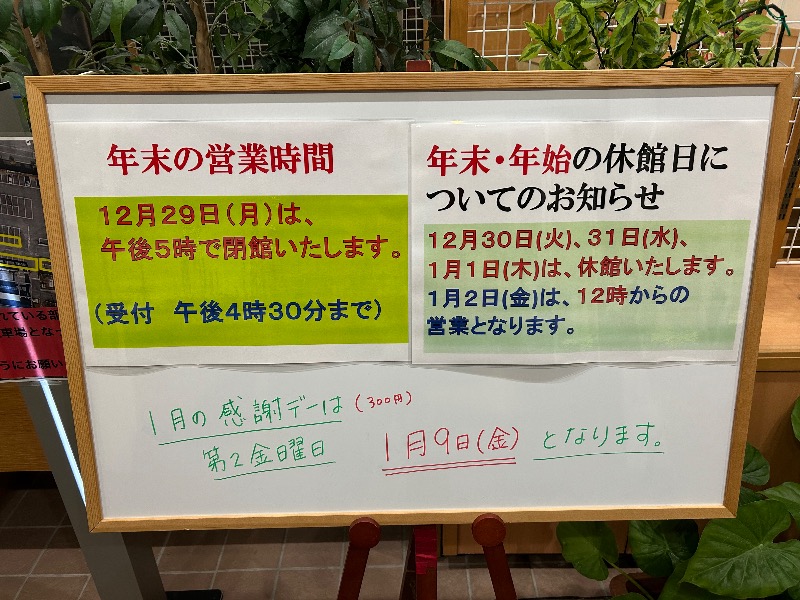 年末の営業時間
12月29日(月)は、
午後5時で閉館いたします。
(受付 午後4時30分まで)
年末・年始の休館日に
ついてのお知らせ
12月30日(火)、31日(水)、
1月1日(木)は、休館いたします。
1月2日(金)は、12時からの
営業となります。
1月の感謝デーは(300円)
第2金曜日 1月9日(金)となります。
れている部
車場となっ
うにお願い